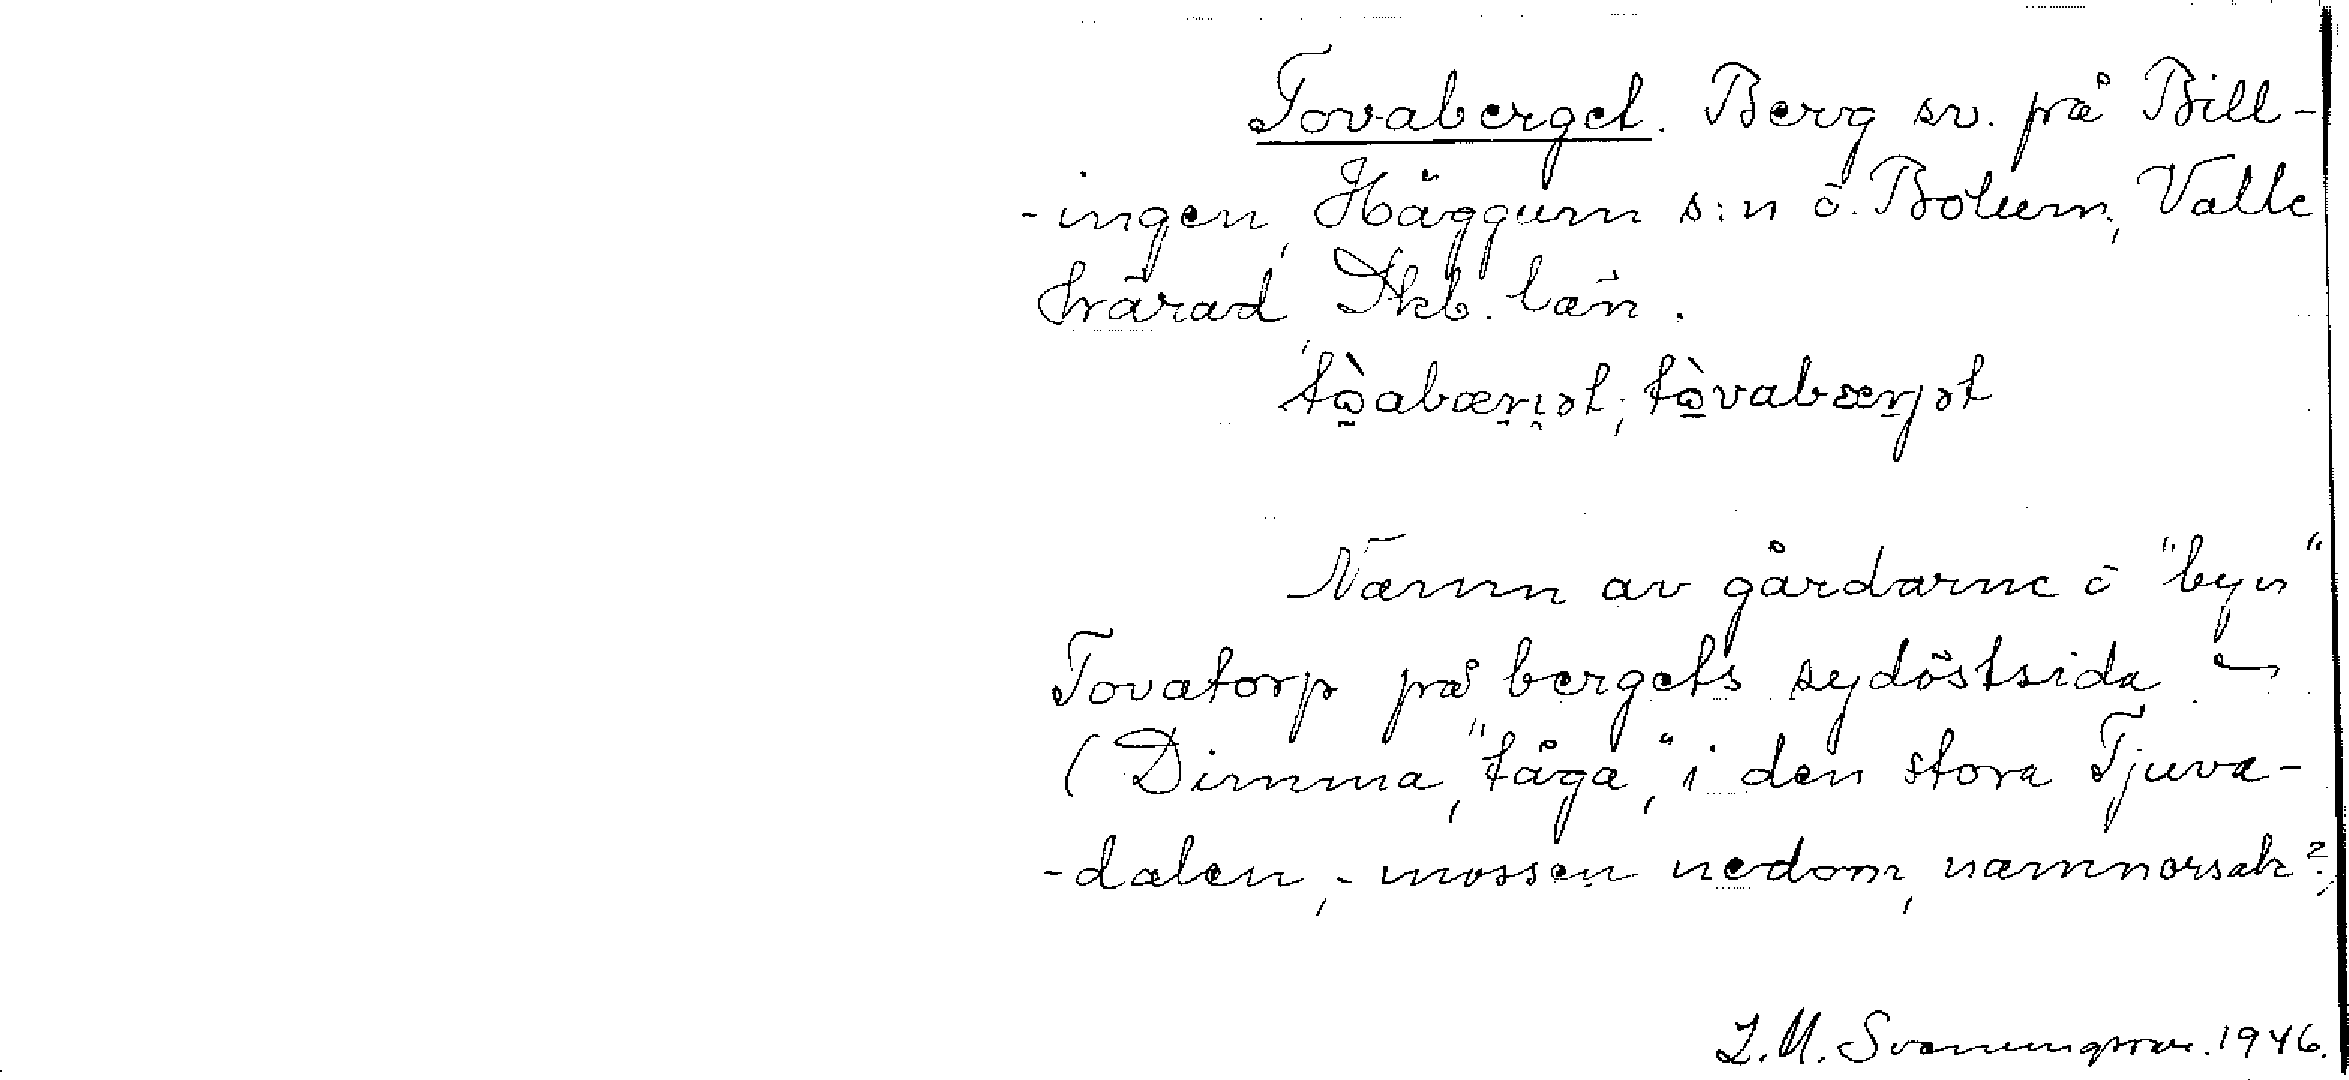 Tovaberget. Berg sv. på Bill-
-ingen, Häggum s:n o. Bolum, Valle
härad Skb. län.
tò̱abærı̭ət; tò̱vabærjət
Namn av gårdarne o "byn"
Tovatorp på bergets sydöstsida
(Dimma, "tåga", i den stora Tjuva-
-dalen, - mossen nedom, namnorsak?)
L.M. Svenungsson. 1946.